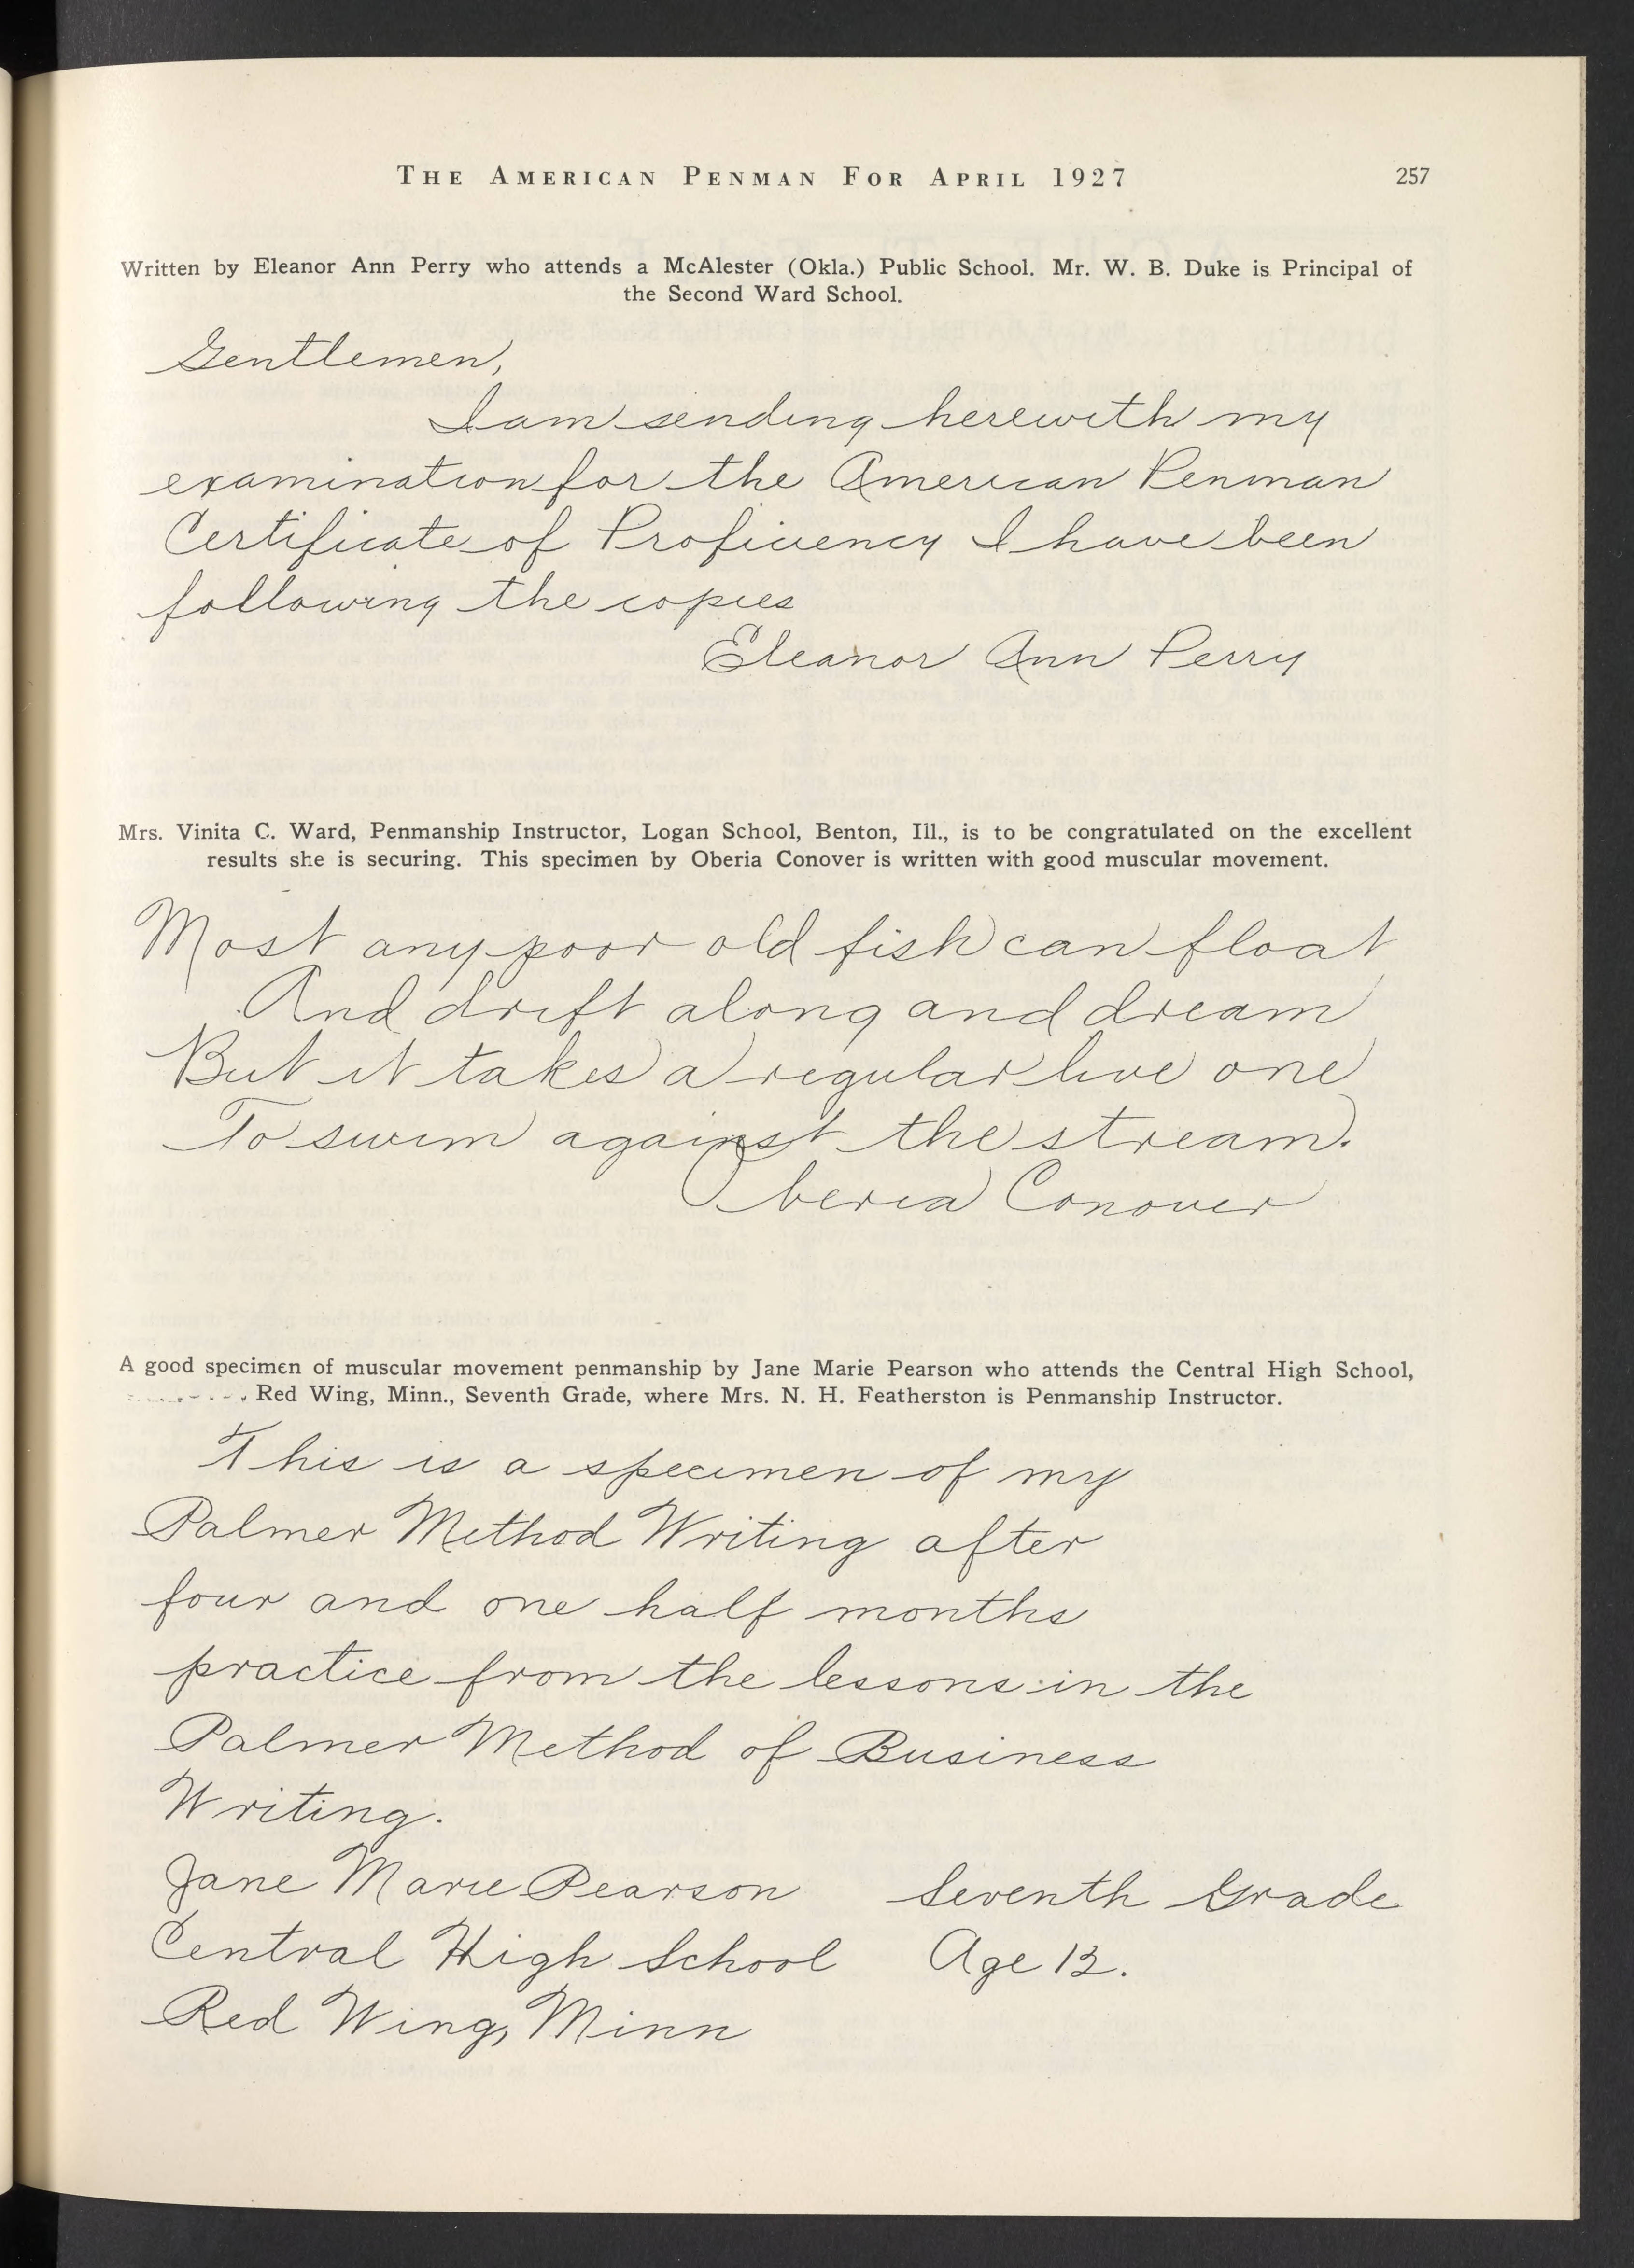 THE AMERICAN PENMAN FOR APRIL 1927 257
Written by Eleanor Ann Perry who attends a McAlester (Okla.) Public School. Mr. W. B. Duke is Principal of
the Second Ward School.
Gentlemen,
I am sending herewith my
examination for the American Penman
Certificate of Proficiency I have been
following the copies
Eleanor Ann Perry
Mrs. Vinita C. Ward, Penmanship Instructor, Logan School, Benton, Ill., is to be congratulated on the excellent
results she is securing. This specimen by Oberia Conover is written with good muscular movement.
Most any poor old fish can float
And drift along and dream
But it takes a regular live one
To swim against the stream.
Oberia Conover
A good specimen of muscular movement penmanship by Jane Marie Pearson who attends the Central High School,
Red Wing, Minn., Seventh Grade, where Mrs. N. H. Featherston is Penmanship Instructor.
This is a specimen of my
Palmer Method Writing after
four and one half months
practice from the lessons in the
Palmer Method of Business
Writing.
Jane Marie Pearson Seventh Grade
Central High School Age 12.
Red Wing, Minn